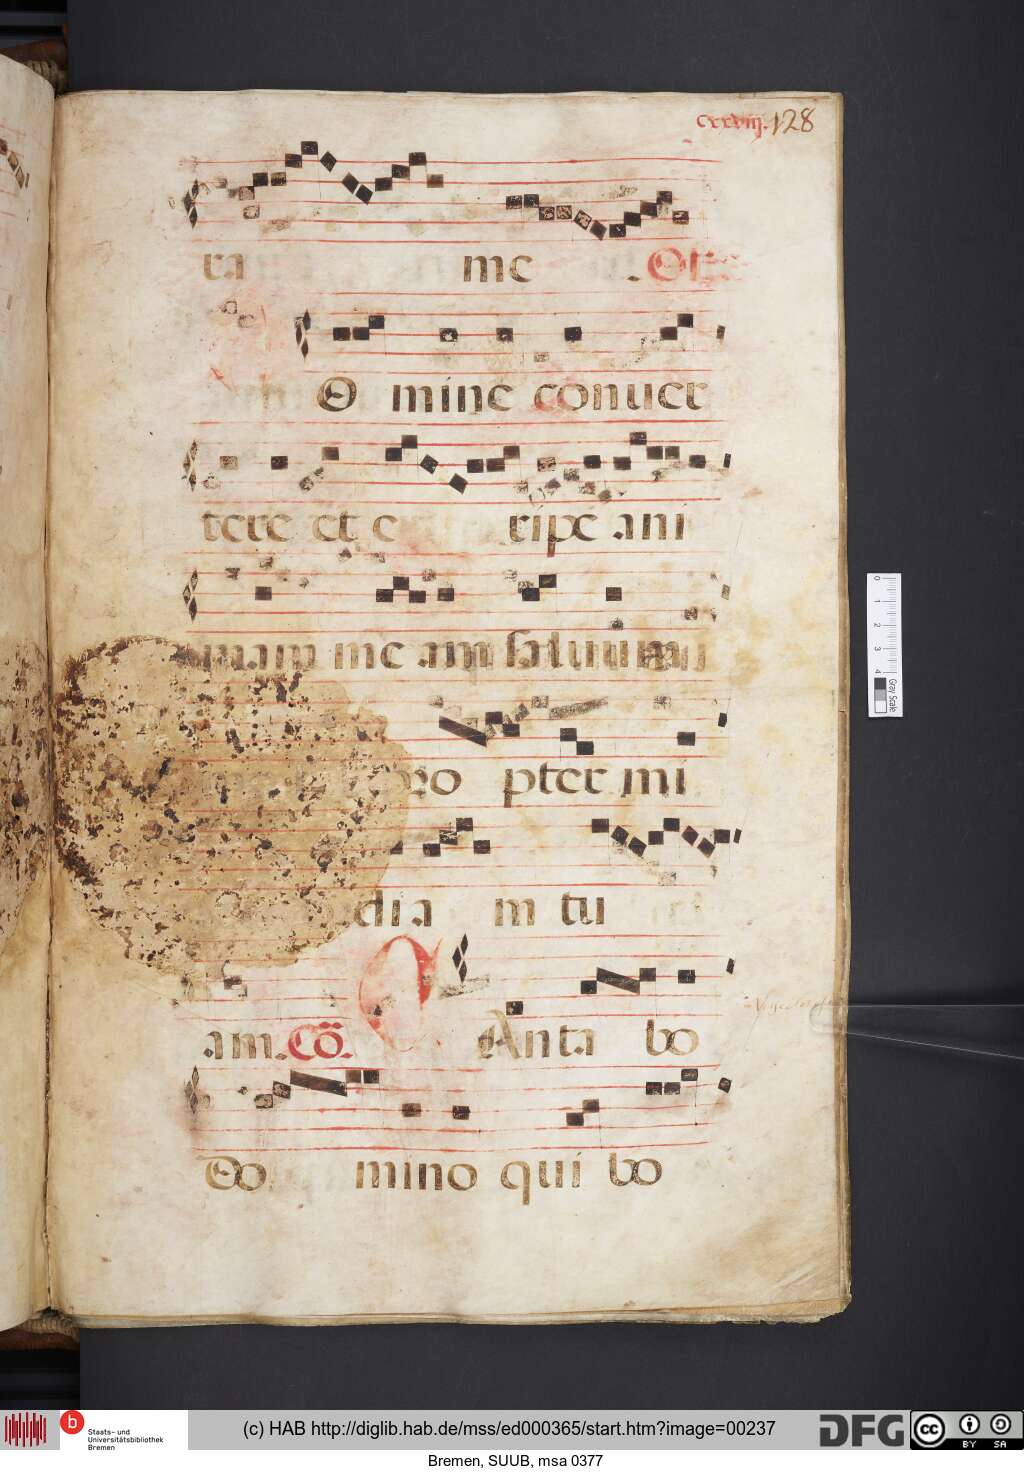 cxxviij. 128
ra me . Offe
O mine conuer
tere et e ripe ani
mam me am saluum
pro pter mi
dia m tu
am. Cõ.
Anta bo
Do mino qui bo
0 1 2 3 4
Gray Scale
b Staats- und Universitätsbibliothek Bremen
(c) HAB http://diglib.hab.de/mss/ed000365/start.htm?image=00237
DFG
cc BY SA
Bremen, SUUB, msa 0377